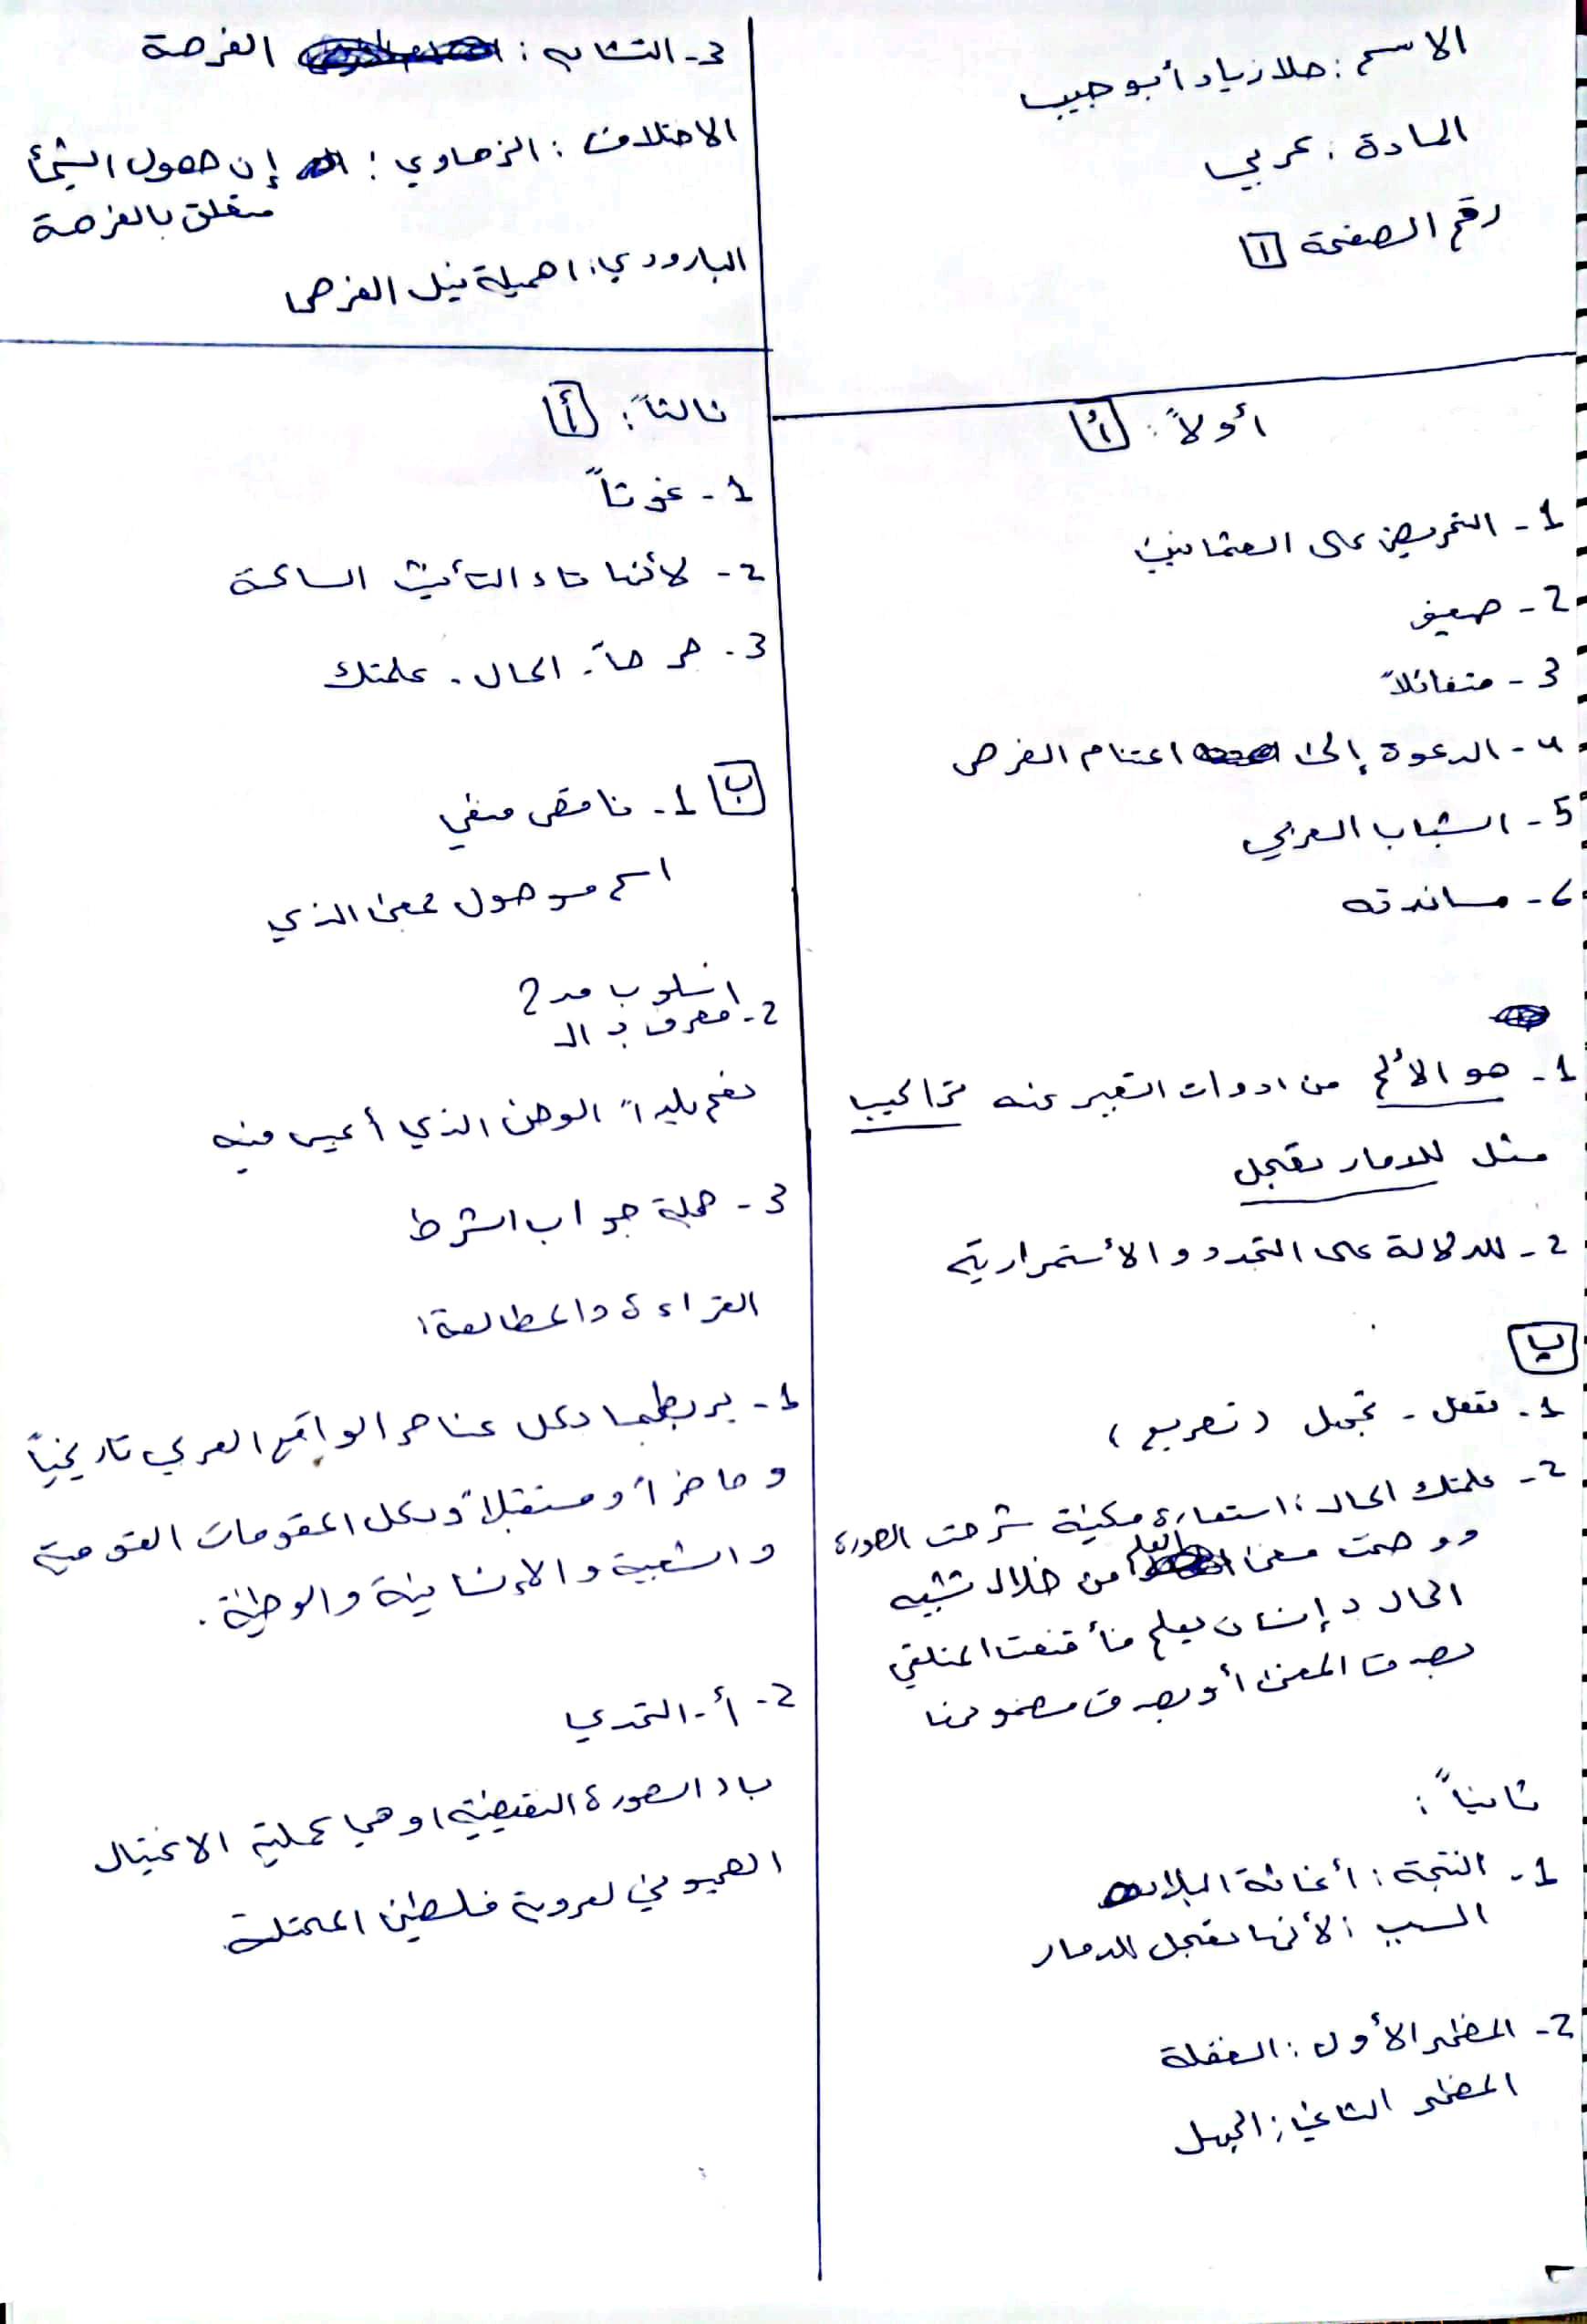 الاسم : حلا زياد أبو جيب
المادة : عربي
رقم الصفحة 1
أولاً : أ
1 - التحريض على العثمانيين
2 - ضعيف
3 - متفائلاً
4 - الدعوة إلى اغتنام الفرص
5 - الشباب العربي
6 - مساندته
1 - هو الألم من ادوات التعبير عنه تراكيب
مثل للدمار تعجل
2 - للدلالة على التجدد و الأستمرارية
ب
1 - تغفل - تجهل ( تصريع )
2 - علمتك الحال : استعارة مكنية شرحت الصورة
ووضحت معنى العلم من خلال تشبيه
الحال بإنسان يعلم فأقنعت المتلقي
بصدق المعنى أو بصدق مضمونها
ثانياً :
1 - النتجة : أغاثة البلاد
السبب : لأنها تعجل للدمار
2 - المظهر الأول : الغفلة
المظهر الثاني : الجهل
3 - التشابه : الفرصة
الاختلاف : الزهاوي : إن حصول الشيئ
متعلق بالفرصة
البارودي : اهمية نيل الفرص
ثالثاً : أ
1 - غوثاً
2 - لأنها تاء التأنيث الساكنة
3 - الحال - علمتك
ب 1 - ناقص منفي
اسم موصول بمعنى الذي
اسلوب مدح
2 - معرف ب ال
نعم بلداً الوطن الذي أعيش فيه
3 - جملة جواب الشرط
القراءة والمطالعة :
1 - يربطها بكل عناصر الواقع العربي تاريخياً
و حاضراً و مستقبلاً وبكل المقومات القومية
و الشعبية و الإنسانية والوطنية .
2 - أ - التحدي
ب ا الصورة النقيضية ا وهي عملية الاغتيال
الصهيوني لعروبة فلسطين المحتلة